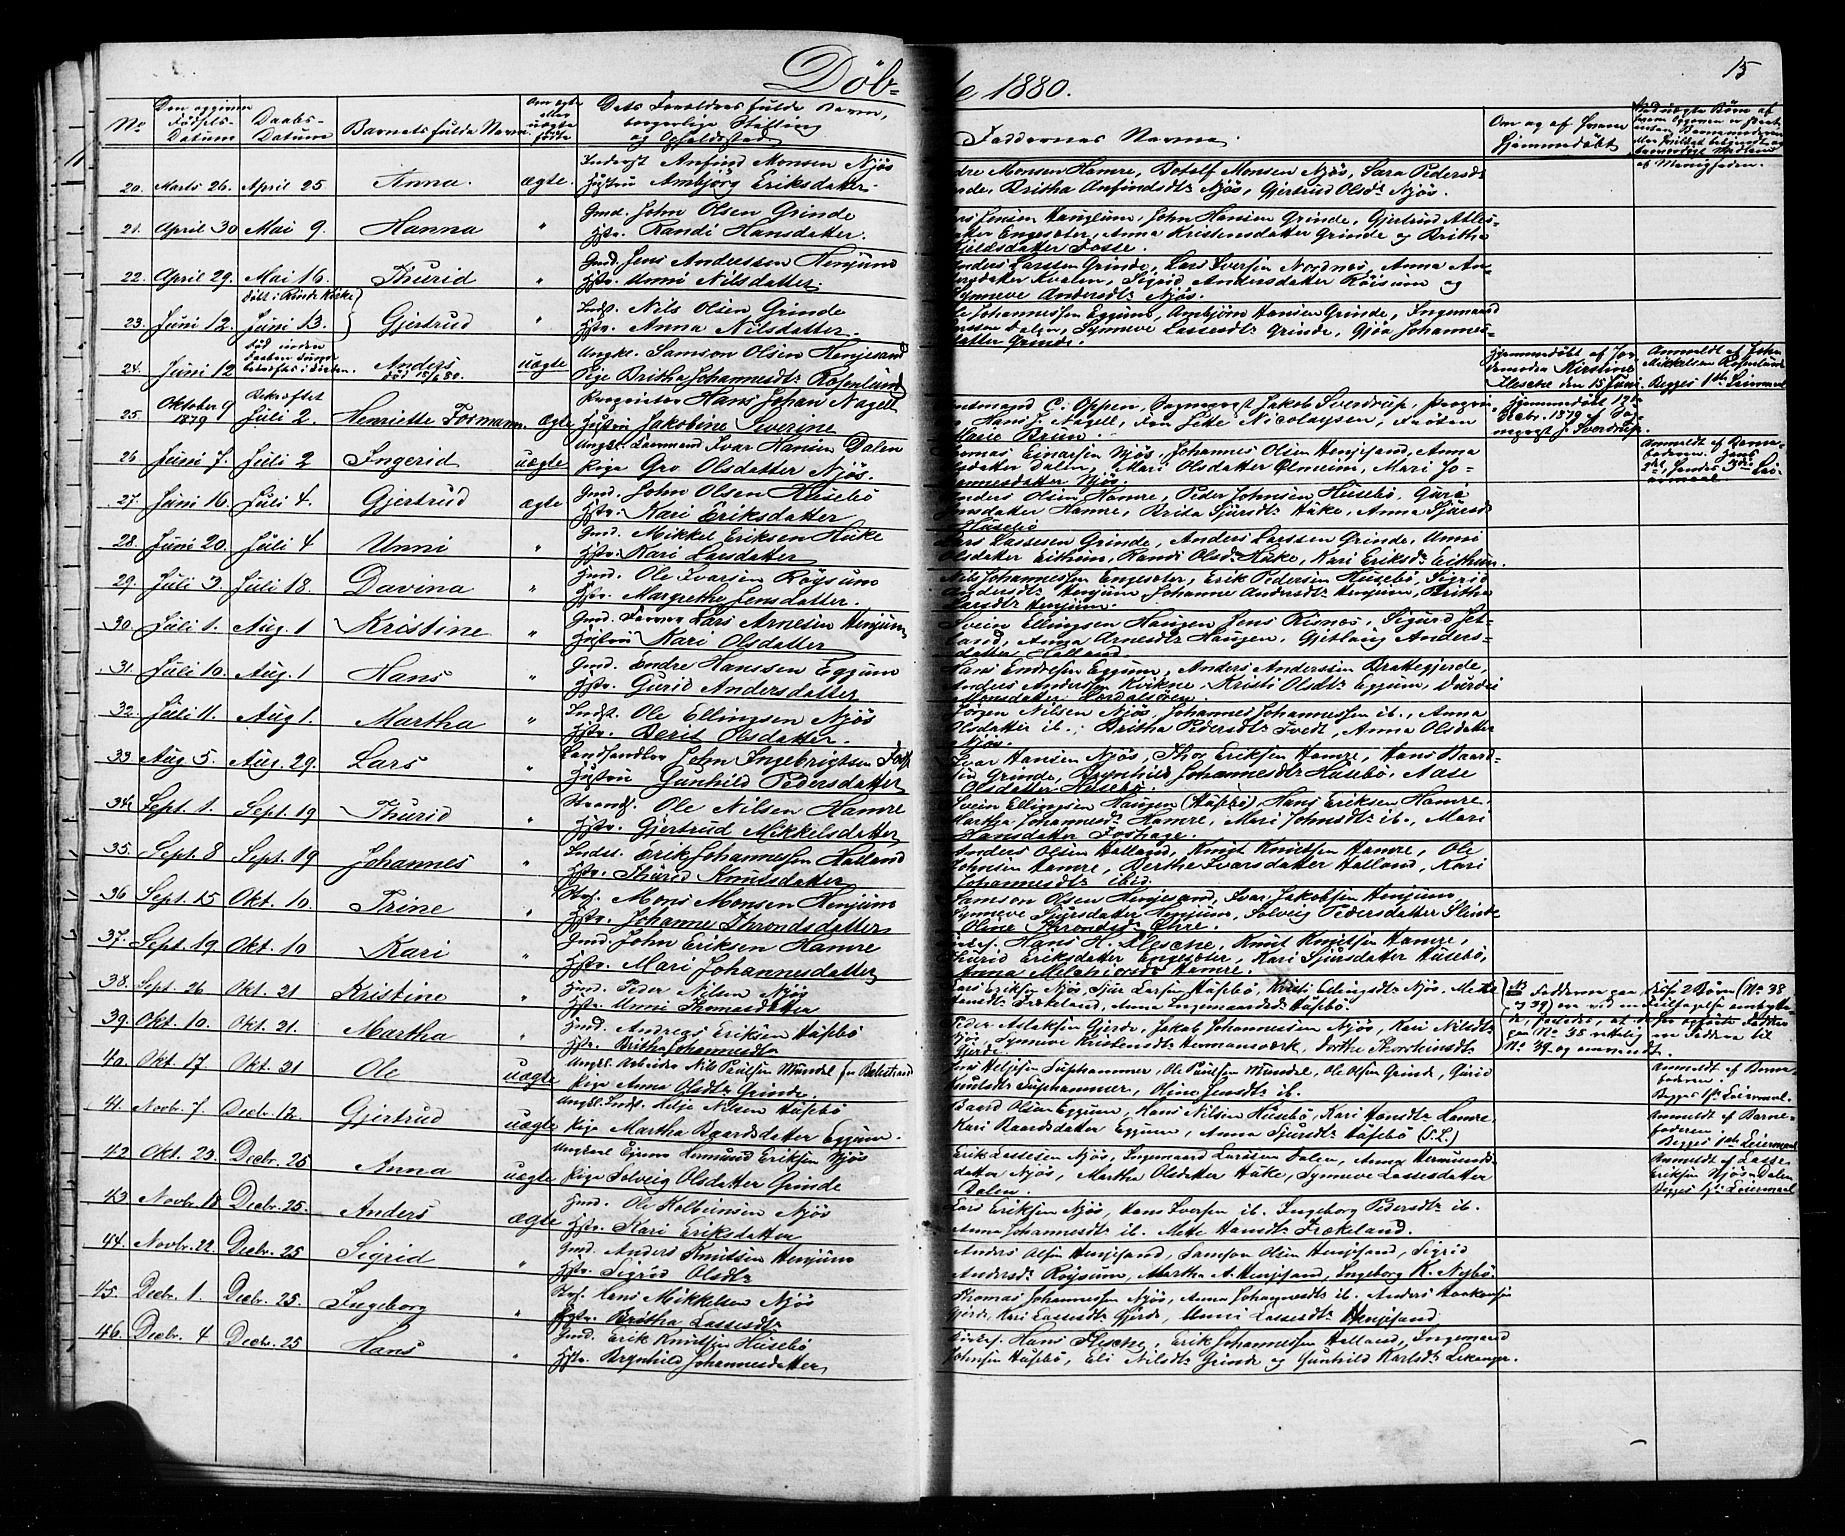 Döb-
te 1880.
15
No
Den opgivne Födsels-Datum
Daabs-Datum
Barnets fulde Navn
Om ægte eller uægte födte
Dets Forældres fulde Navn, borgerlige Stilling og Opholdssted
Faddernes Navne
Om og af hvem Hjemmedöbt
20. Marts 26. April 25 Anna. ægte.
Anfind Monsen Njös
Hustru Ambjörg Eriksdatter.
Monsen Hamre, Botolf Monsen Njös, Sara Pedersdr
Britha Anfindsdr Njös, Gjertrud Olsdr Njös.
21. April 30 Mai 9. Hanna "
Gmd. John Olsen Grinde
Hstr. Randi Hansdatter.
John Hansen Grinde, Gjertrud
Engesæter, Anna Kristensdatter Grinde og Britha
Fosse.
22. April 29. Mai 16. Thurid "
Gmd. Jens Anderssen Henjum
Hstr. Unni Nilsdatter.
Anders Larssen Grinde, Lars Iversen Nordnes, Anna An-
Kvalen, Sigrid Andersdatter Röisum og
Synneve Andersdr Njös.
23. Juni 12. Juni 13. Gjertrud "
Nils Olsen Grinde
Hstr. Anna Nilsdatter.
Johannessen Eggum, Ambjörn Hansen Grinde, Ingemand
Dalen, Synneve Lassesdr Grinde, Gjöa Johannes-
datter Grinde.
24. Juni 12 Anders död 15/6 80. uægte
Ungkr. Samson Olsen Henjesand
Pige Britha Johannesdr Rosenlund
Hjemmedöbt af Jor-
demodra Kirstine
Flesche den 15 Juni.
Anmeldt af John
Mikkelsen Rosenlund
Begges 1ste Leiermaal
25. Oktober 9 1879 Bekræftet Juli 2. Henriette Formann. ægte
Hans Johan Nagell
Hustru Jakobine Severine
C. Oppen, Sogneprest Jakob Sverdrup,
Hans J. Nagell, Fru Jette Nicolaysen, Fröken
Marie Brun.
Hjemmedöbt 19de
Decbr. 1879 af Sog-
neprest J. Sverdrup.
26. Juni 7. Juli 2 Ingerid uægte
Ungkr. Ivar Hansen Dalen
Pige Gro Olsdatter Njös.
Einarsen Njös, Johannes Olsen Henjesand, Anna
Olsdatter Dalen, Mari Olsdatter Ølmeim, Mari Jo-
hannesdatter Njös.
27. Juni 16. Juli 4. Gjertrud ægte
Gmd. John Olsen Husebö
Hstr. Kari Eriksdatter
Anders Olsen Hamre, Peder Johnsen Husebö, Guri
Hamre, Brita Sjursdr Hake, Anna Sjursdr
Husebö
28. Juni 20. Juli 4 Unni "
Gmd. Mikkel Eriksen Hake
Hstr. Kari Larsdatter
Lars Lassesen Grinde, Anders Larssen Grinde, Unni
Olsdatter Eithun, Randi Olsdr Hake, Kari Eriksdr Eithun.
29. Juli 3. Juli 18. Davina "
Hmd. Ole Ivarsen Röysum
Hstr. Margrethe Jensdatter.
Nils Johannessen Engesæter, Erik Pedersen Husebö, Sigrid
Andersdr Henjum, Johanne Andersdr Henjum, Britha
Larsdr Henjum.
30. Juli 1. Aug. 1 Kristine "
Gmd. Lars Arnesen Henjum
Hustru Kari Olsdatter
Svein Ellingsen Haugen, Jens Risnes, Sigurd Jet-
land, Anna Arnesdr Haugen, Gjetlaug Anders-
datter Hatland.
31. Juli 10. Aug. 1 Hans "
Gmd. Endre Hanssen Eggum
Hstr. Gurid Andersdatter
Hans Endresen Eggum, Anders Anderssen Brattegjerde,
Anders Anderssen Kvikne, Kristi Olsdr Eggum, Durdei
Monsdatter Lærdalsören.
32. Juli 11. Aug 1. Martha "
Indst. Ole Ellingsen Njös
Hstr. Berit Olsdatter.
Jörgen Nilsen Njös, Johannes Johannessen ib., Anna
Olsdatter ib., Britha Pedersdr Tvedt, Anna Olsdatter
Njös.
33 Aug 5. Aug. 29. Lars "
Landhandler John Ingebrigtsen
Hustru Gunhild Pedersdatter
Ivar Hansen Njös, Thor Eriksen Hamre, Hans Baard-
sen Grinde, Brynhild Johannesdr Husebö, Aase
Olsdatter Husebö.
34. Sept. 1. Sept. 19 Thurid "
Strands. Ole Nilsen Hamre
Hstr. Gjertrud Mikkelsdatter
Svein Ellingsen Haugen (Husebö), Hans Eriksen Hamre,
Martha Johannesdr Hamre, Mari Johnsdr ib., Mari
Hansdatter Foshage.
35. Sept. 8 Sept. 19 Johannes "
Indst. Erik Johannessen Hatland
Hstr. Thurid Knutsdatter
Anders Olsen Hatland, Knut Knutsen Hamre, Ole
Johnsen Hamre, Berthe Ivarsdatter Hatland, Kari
Johannesdr ibid.
36 Sept. 15 Okt. 10. Trine "
Mons Monsen Henjum
Hstr. Johanne Throndsdatter
Samson Olsen Henjesand, Ivar Jakobsen Henjum,
Synneve Sjursdatter Henjum, Solveig Pedersdatter Slinde
Oline Throndsdr Øhre.
37. Sept. 19 Okt. 10 Kari "
Gmd. John Eriksen Hamre
Hstr. Mari Johannesdatter
Hans H. Flesche, Knut Knutsen Hamre,
Thurid Eriksdatter Engesæter, Kari Sjursdatter Husebö,
Anna Melchiorsdr Hamre.
38. Sept. 26 Okt. 21 Kristine "
Hmd. Peder Nilsen Njös
Hstr. Unni Thomasdatter
Lars Eriksen Njös, Sjur Larsen Husebö, Kristi Ellingsdr Njös, Mette
Hansdr Frækeland, Anna Ingemansdr Husebö.
39. Okt. 10. Okt. 21. Martha "
Hmd. Andreas Eriksen Husebö
Hstr. Britha Johannesdtr
Peder Aslaksen Gjerde, Jakob Johannessen Njös, Kari Nilsdr
Njös, Synneve Kristensdr Hermansværk, Dorthe Thorsteinsdr
Gjerde.
40. Okt. 17 Okt. 31 Ole uægte
Ungkr. Arbeider Nils Paulsen Mundal fra Balestrand
Pige Anna Olsdr Grinde.
Heljesen Suphammer, Ole Paulsen Mundal, Ole Olsen Grinde, Gurid
Suphammer, Oline Jensdr ib.
Anmeldt af Barne-
faderen.
Begges 1ste Leiermaal.
41. Novbr. 7. Decbr. 12 Gjertrud uægte
Ungkr. Indst. Helje Nilsen Husebö
Pige Martha Baardsdatter Eggum.
Baard Olsen Eggum, Hans Nilsen Husebö, Kari Hansdtr Hamre,
Kari Baardsdatter Eggum, Anna Sjursdr Husebö (S. L.)
Anmeldt af Barne-
faderen.
Begges 1ste Leiermaal
42 Okt. 23. Decbr. 25 Anna uægte
Ungkarl Eriksen Njös
Pige Solveig Olsdatter Grinde
Erik Lassesen Njös, Ingemand Larssen Dalen, Anna Hermunds-
datter Njös, Martha Olsdatter Hake, Synneve Lassesdatter
Dalen.
Anmeldt af Lasse
Eriksen Njös-Dalen
Begges 1ste Leiermaal
43 Novbr. 18 Decbr. 25. Anders ægte
Hmd. Ole Kolbeinsen Njös
Hstr. Kari Eriksdatter
Lars Eriksen Njös, Hans Iversen ib. Ingeborg Pedersdr ib.
Anna Johannesdr ib. Mete Hansdr Frækeland.
44. Novbr. 22 Decbr. 25 Sigrid "
Gmd. Anders Knutsen Henjum
Hstr. Sigrid Olsdr
Anders Olsen Henjesand, Samson Olsen Henjesand, Sigrid
Andersdr Roysum, Martha A. Henjesand, Ingeborg K. Nybö.
45. Decbr. 1. Decbr. 25. Ingeborg "
Hans Mikkelsen Njös
Hstr. Britha Lassesdr
Thomas Johannessen Njös, Anna Johannesdr ib. Anders Haakonsen
Gjerde, Kari Lassesdr Gjerde, Unni Lassesdr Henjesand.
46. Decbr. 4 Decbr. 25 Hans "
Gmd. Erik Knutsen Husebö
Hstr. Brynhild Johannesdatter
Hans Flesche, Erik Johannessen Hatland, Ingemand
Johnsen Husebö, Eli Nilsdr Grinde og Gunhild Karlsdr Lekanger.